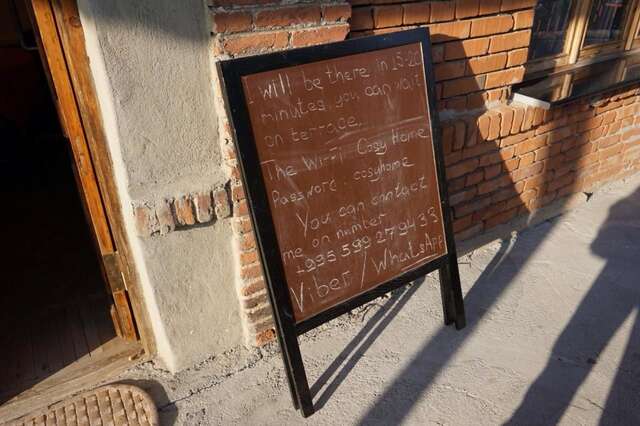 I will be there in 15-20
minutes, you can wait
on terrace.
The Wirri: Cosy Home
Password: cosyhome
You can contact
me on number
+995 599 279433
Viber / WhatsApp